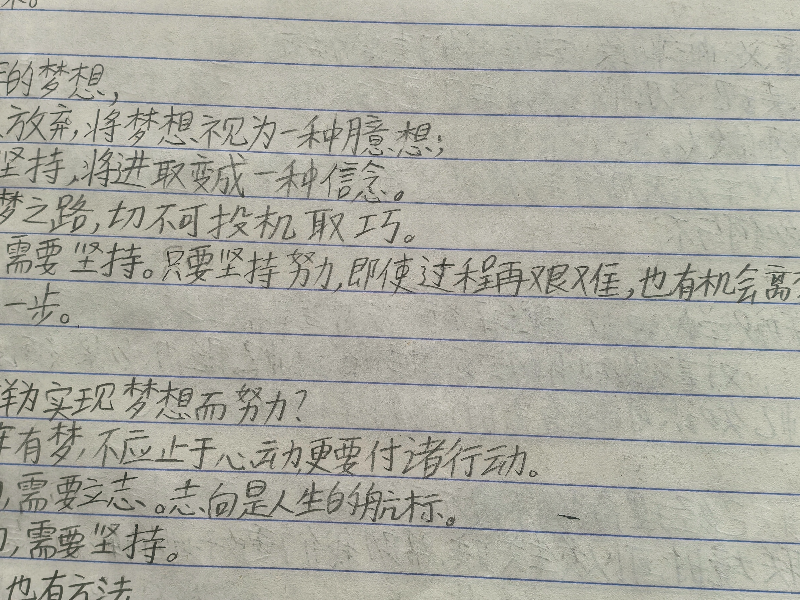 的梦想,
放弃,将梦想视为一种臆想;
坚持,将进取变成一种信念。
梦之路,切不可投机取巧。
需要坚持。只要坚持努力,即使过程再艰难,也有机会离
一步。
样为实现梦想而努力?
年有梦,不应止于心动更要付诸行动。
需要立志。志向是人生的航标。
需要坚持。
也有方法